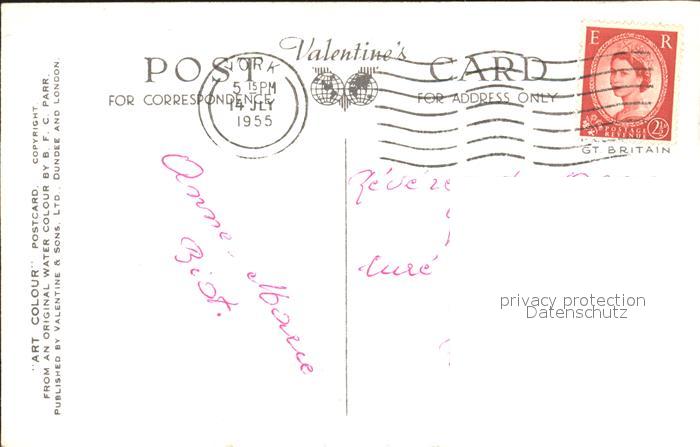 "ART COLOUR" POSTCARD. COPYRIGHT
FROM AN ORIGINAL WATER COLOUR BY B. F. C. PARR.
PUBLISHED BY VALENTINE & SONS, LTD., DUNDEE AND LONDON.
Valentine's
POST CARD
FOR CORRESPONDENCE
FOR ADDRESS ONLY
YORK
5 15 PM
14 JLY
1955
E R
POSTAGE
REVENUE
2½
GT BRITAIN
Anne-Marie
Biot.
curé
privacy protection
Datenschutz